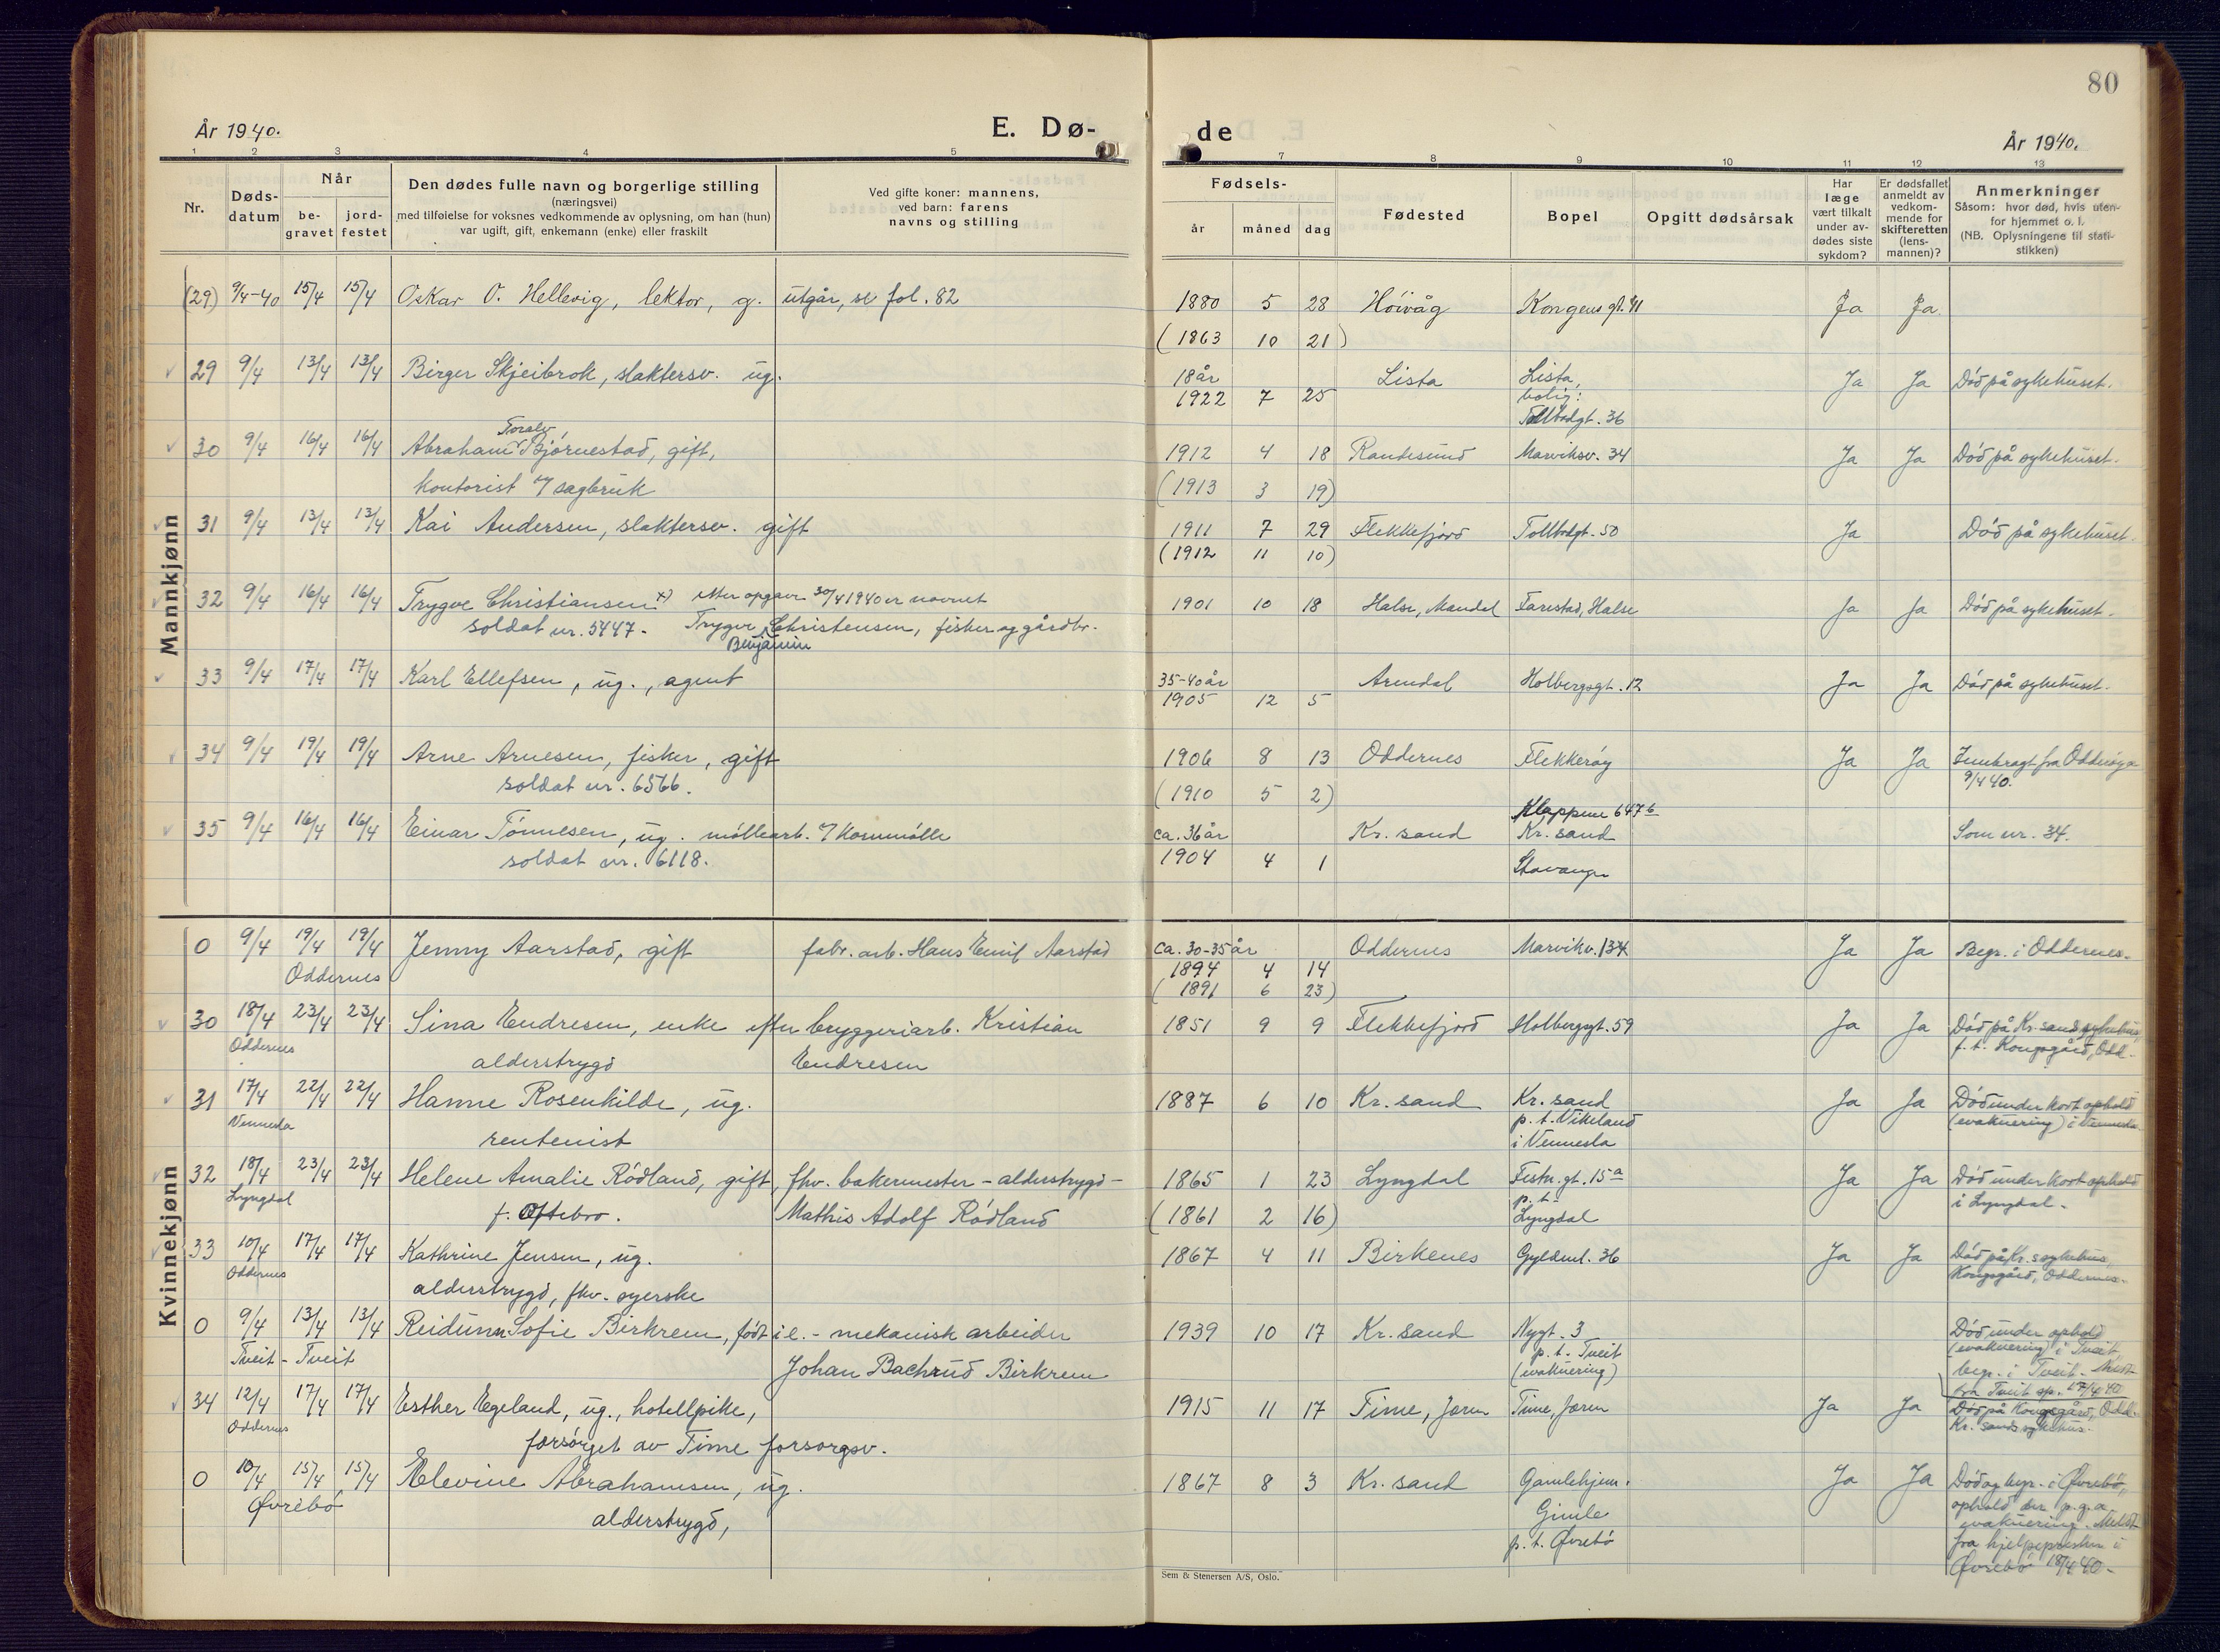 80
År 1940.
E. Dø-
de
År 1940.
1 2 3 4 5 7 8 9 10 11 12 13
Nr.
Døds-
datum
Når
be-
gravet
jord-
festet
Den dødes fulle navn og borgerlige stilling
(næringsvei)
med tilføielse for voksnes vedkommende av oplysning, om han (hun)
var ugift, gift, enkemann (enke) eller fraskilt
Ved gifte koner: mannens,
ved barn: farens
navns og stilling
Fødsels-
år måned dag
Fødested
Bopel
Opgitt dødsårsak
Har
læge
vært tilkalt
under av-
dødes siste
sykdom?
Er dødsfallet
anmeldt av
vedkom-
mende for
skifteretten
(lens-
mannen)?
Anmerkninger
Såsom: hvor død, hvis uten-
for hjemmet o. l.
(NB. Oplysningene til stati-
stikken)
Mannkjønn
(29) 9/4-40 15/4 15/4 Oskar O. Hellevig, lektor, g. utgår, se fol. 82 1880 5 28 Høivåg Kongensgt. 41 Ja Ja.
(1863 10 21)
29 9/4 13/4 13/4 Birger Skjeibrok, slaktersv. ug. 18 år Lista Lista, Ja Ja Død på sykehuset.
1922 7 25 bolig:
Tollbodgt. 36
Toralv
30 9/4 16/4 16/4 Abraham Bjørnestad, gift, 1912 4 18 Randesund Marviksv. 34 Ja Ja Død på sykehuset.
kontorist v/ sagbruk (1913 3 19)
31 9/4 13/4 13/4 Kai Andersen, slaktersv. gift 1911 7 29 Flekkefjord Tollbodgt. 50 Ja Død på sykehuset.
(1912 11 10)
32 9/4 16/4 16/4 Trygve Christiansen x) etter opgave 30/4 1940 er navnet 1901 10 18 Halse, Mandal Farestad, Halse Ja Ja Død på sykehuset.
soldat nr. 5447. Trygve Christensen, fisker og gårdbr.
Benjamin
33 9/4 17/4 17/4 Karl Ellefsen, ug., agent 35-40 år Arendal Holbergsgt. 12 Ja Ja Død på sykehuset.
1905 12 5
34 9/4 19/4 19/4 Arne Arnesen, fisker, gift 1906 8 13 Oddernes Flekkerøy Ja Ja Innbragt fra Odderøya
soldat nr. 6566. (1910 5 2) 9/4 40.
Kleppene 647 b
35 9/4 16/4 16/4 Einar Tønnesen, ug. møllearb. v/ Kornmølle ca. 36 år Kr. sand Kr. sand Som nr. 34.
soldat nr. 6118. 1904 4 1 Stavanger
Kvinnekjønn
0 9/4 19/4 19/4 Jenny Aarstad, gift fabr. arb. Hans Emil Aarstad ca. 30-35 år Oddernes Marvikv. 134 Ja Ja Begr. i Oddernes.
Oddernes 1894 4 14
(1891 6 23)
30 18/4 23/4 23/4 Sina Endresen, enke efter bryggeriarb. Kristian 1851 9 9 Flekkefjord Holbergsgt. 59 Ja Ja Død på Kr. sands sykehus
Oddernes alderstrygd Endresen f. t. Kongsgård, Odd.
31 17/4 22/4 22/4 Hanne Rosenkilde, ug. 1887 6 10 Kr. sand Kr. sand Ja Ja Død under kort ophold
Vennesla rentenist p. t. Vikeland (evakuering) i Vennesla.
i Vennesla
32 18/4 23/4 23/4 Helene Amalie Rødland, gift, fhv. bakermester - alderstrygd - 1865 1 23 Lyngdal Festn. gt. 15a Ja Ja Død under kort ophold
Lyngdal f. Oftebro. Mathis Adolf Rødland (1861 2 16) p. t. Lyngdal i Lyngdal.
33 10/4 17/4 17/4 Kathrine Jensen, ug. 1867 4 11 Birkenes Gyldenl. 36 Ja Ja Død på Kr. s. sykehus,
Oddernes alderstrygd, fhv. syerske Kongsgård, Oddernes.
0 9/4 13/4 13/4 Reidunn Sofie Birkrem, født i e. - mekanisk arbeider 1939 10 17 Kr. sand Nygt. 3 Død under ophold
Tveit - Tveit Johan Bachrud Birkrem p. t. Tveit (evakuering) i Tveit,
(evakuering) begr. i Tveit. Meldt
fra Tveit sp. 17/4 40
34 12/4 17/4 17/4 Esther Egeland, ug., hotellpike, 1915 11 17 Time, Jæren Time, Jæren Ja Ja Død på Kongsgård, Odd.
Oddernes forsørget av Time forsorgsv. Kr. sands sykehus.
0 10/4 15/4 15/4 Elevine Abrahamsen, ug. 1867 8 3 Kr. sand Gamlehjem. Ja Ja Død og begr. i Øvrebø,
Øvrebø alderstrygd, Gimle ophold der p. g. a.
p. t. Øvrebø evakuering. Meldt
fra hjelpepresten i
Øvrebø 18/4 40.
Sem & Stenersen A/S, Oslo.